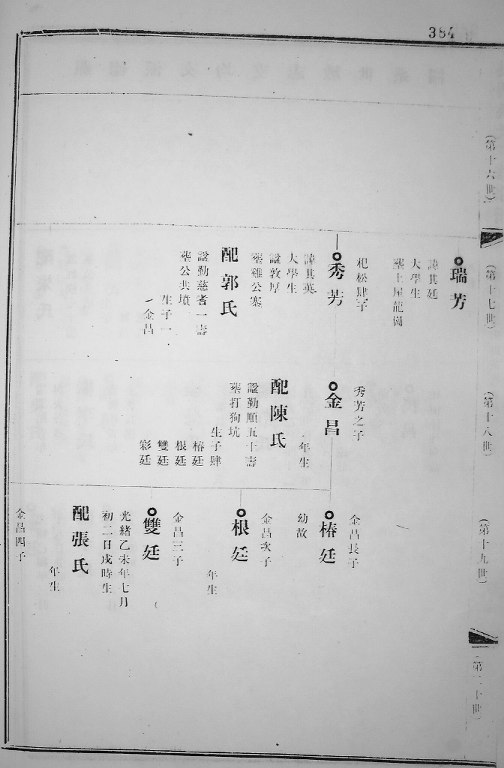 384
(第十六世)
(第十七世)
(第十八世)
(第十九世)
(第二十世)
瑞芳
諱其廷
大學生
塟土屋龍崗
杞松肆子
秀芳
諱其英
大學生
諡敦厚
塟雞公寨
配郭氏
諡勤慈耆一壽
塟公共墳
生子一
金昌
秀芳之子
金昌
年生
配陳氏
諡勤順五十壽
塟打狗坑
生子肆
椿廷
根廷
雙廷
彩廷
金昌長子
椿廷
幼故
金昌次子
根廷
年生
金昌三子
雙廷
光緒乙未年七月
初二日戌時生
配張氏
年生
金昌四子